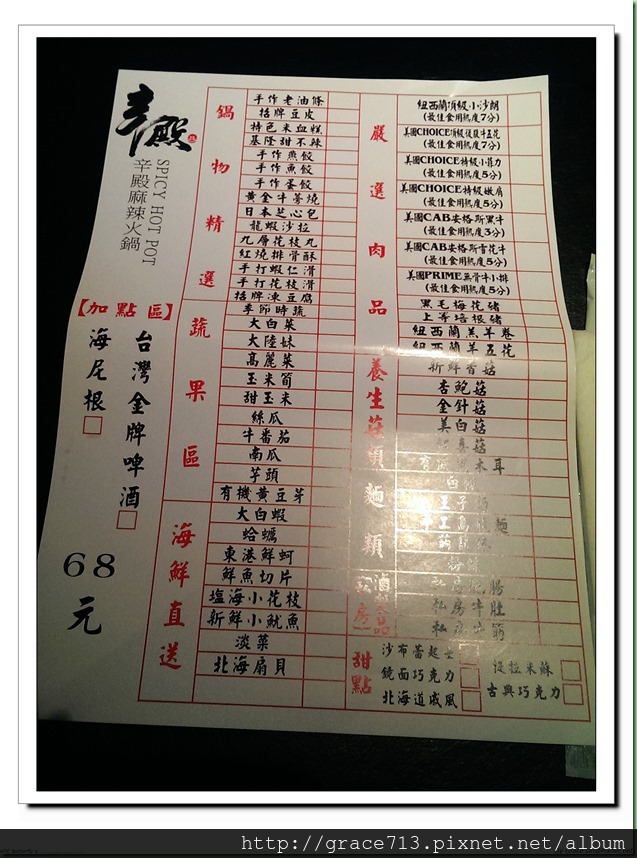 辛殿
SPICY HOT POT
辛殿麻辣火鍋
【加點區】
台灣金牌啤酒
海尼根
68元
鍋物精選
手作老油條
招牌豆皮
特色米血糕
基隆甜不辣
手作燕餃
手作魚餃
手作蛋餃
黃金牛蒡燒
日本芝心包
龍蝦沙拉
九層花枝丸
紅燒排骨酥
手打蝦仁滑
手打花枝滑
招牌凍豆腐
蔬果區
季節時蔬
大白菜
大陸妹
高麗菜
玉米筍
甜玉米
絲瓜
牛番茄
南瓜
芋頭
有機黃豆芽
海鮮直送
大白蝦
蛤蠣
東港鮮蚵
鮮魚切片
塩海小花枝
新鮮小魷魚
淡菜
北海扇貝
嚴選肉品
紐西蘭頂級小沙朗
(最佳食用熟度7分)
美國CHOICE頂級後腿牛五花
(最佳食用熟度7分)
美國CHOICE特級小菲力
(最佳食用熟度5分)
美國CHOICE特級嫩肩
(最佳食用熟度5分)
美國CAB安格斯黑牛
(最佳食用熟度3分)
美國CAB安格斯雪花牛
(最佳食用熟度5分)
美國PRIME無骨牛小排
(最佳食用熟度5分)
黑毛梅花豬
上等培根豬
紐西蘭羔羊卷
紐西蘭羊五花
養生菇類
新鮮香菇
杏鮑菇
金針菇
美白菇
麵類
私房滷製品
私房牛肚
私房牛筋
甜點
沙布蕾起士
提拉米蘇
鏡面巧克力
古典巧克力
北海道戚風
http://grace713.pixnet.net/album